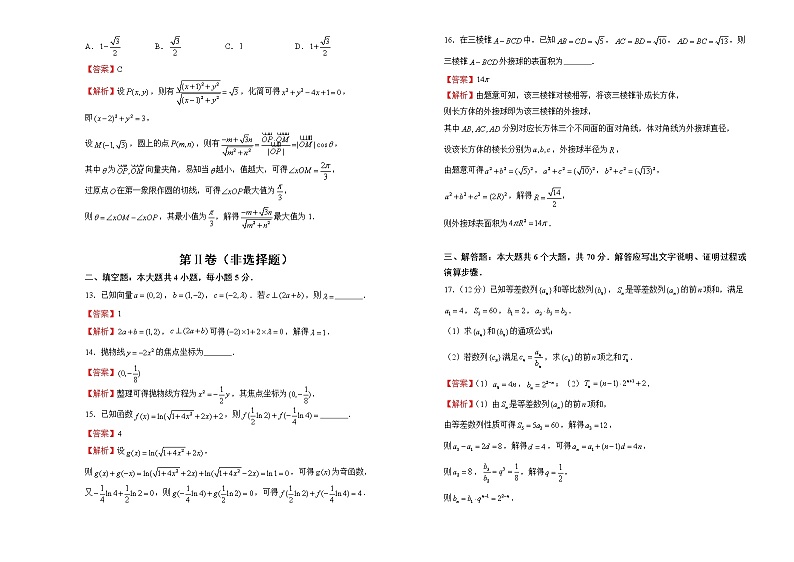 A．1−√3/2 B．√3/2 C．1 D．1+√3/2
【答案】C
【解析】设P(x, y)，则有√((x+1)²+y²)/√((x−1)²+y²)=√3，化简可得x²+y²−4x+1=0，
即(x−2)²+y²=3，
设M(−1, √3)，圆上的点P(m,n)，则有(−m+√3n)/√(m²+n²)=OP·OM/|OP|=|OM|cosθ，
其中θ为OP,OM向量夹角，易知当θ越小，值越大，可得∠xOM=2π/3，
过原点O在第一象限作圆的切线，可得∠xOP最大值为π/3，
则θ=∠xOM−∠xOP，其最小值为π/3，解得(−m+√3n)/√(m²+n²)最大值为 1．
第Ⅱ卷（非选择题）
二、填空题：本大题共4小题，每小题5分．
13．已知向量a=(0,2)，b=(1,−2)，c=(−2,λ)．若c⊥(2a+b)，则λ=_______．
【答案】1
【解析】2a+b=(1,2)，c⊥(2a+b)可得(−2)×1+2×λ=0，解得λ=1．
14．抛物线y=−2x²的焦点坐标为_______．
【答案】(0,−1/8)
【解析】整理可得抛物线方程为x²=−1/2y，其焦点坐标为(0,−1/8)．
15．已知函数f(x)=ln(√(1+4x²)+2x)+2，则f(1/2ln2)+f(−1/4ln4)=_______．
【答案】4
【解析】设g(x)=ln(√(1+4x²)+2x)，
则g(x)+g(−x)=ln(√(1+4x²)+2x)+ln(√(1+4x²)−2x)=ln1=0，可得g(x)为奇函数，
又−1/4ln4+1/2ln2=0，则g(−1/4ln4)+g(1/2ln2)=0，可得f(1/2ln2)+f(−1/4ln4)=4．
16．在三棱锥A−BCD中，已知AB=CD=√5，AC=BD=√10，AD=BC=√13，则
三棱锥A−BCD外接球的表面积为_______．
【答案】14π
【解析】由题意可知，该三棱锥对棱相等，将该三棱锥补成长方体，
则长方体的外接球即为该三棱锥的外接球，
其中AB,AC,AD分别对应长方体三个不同面的面对角线，体对角线为外接球直径，
设该长方体的棱长分别为a,b,c，外接球半径为R，
由题意可得a²+b²=(√5)²，a²+c²=(√10)²，b²+c²=(√13)²，
a²+b²+c²=(2R)²，解得R=√14/2，
则外接球表面积为4πR²=14π．
三、解答题：本大题共6个大题，共70分．解答应写出文字说明、证明过程或
演算步骤．
17．（12分）已知等差数列{aₙ}和等比数列{bₙ}，Sₙ是等差数列{aₙ}的前n项和，满足
a₁=4，S₅=60，b₁=2，a₂·b₃=b₂．
（1）求{aₙ}和{bₙ}的通项公式；
（2）若数列{cₙ}满足cₙ=aₙ/bₙ，求{cₙ}的前n项之和Tₙ．
【答案】（1）aₙ=4n，bₙ=2²⁻ⁿ；（2）Tₙ=(n−1)·2ⁿ⁺¹+2．
【解析】（1）由Sₙ是等差数列{aₙ}的前n项和，
由等差数列性质可得S₅=5a₃=60，解得a₃=12，
则a₃−a₁=2d=8，解得d=4，可得aₙ=a₁+(n−1)d=4n，